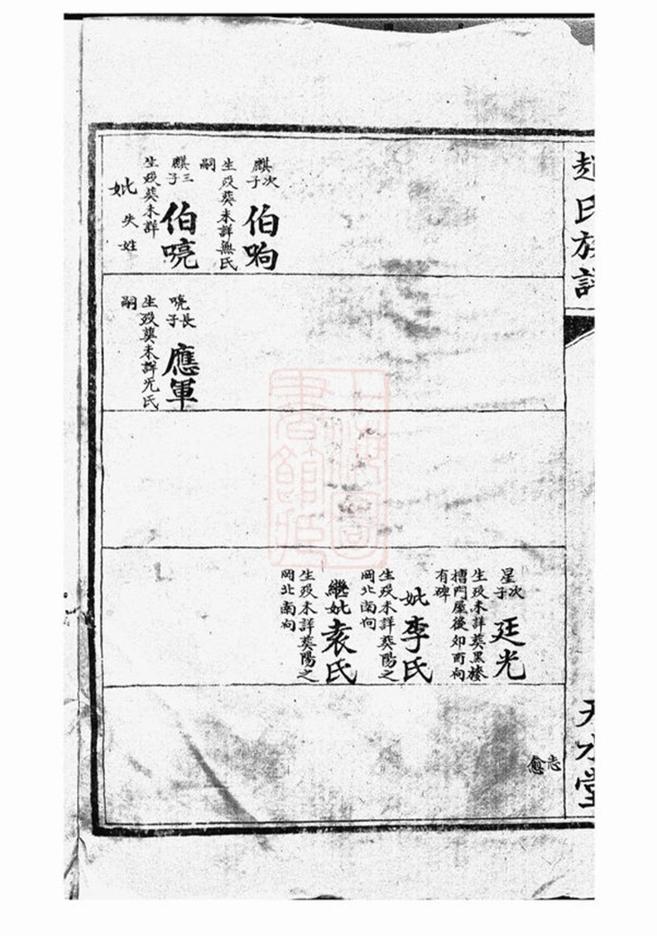 趙氏族譜
天水堂
麒次子
伯响
生歿葬未詳無氏
嗣
麒三子
伯喨
生歿葬未詳
妣失姓
喨長子
應軍
生歿葬未詳无氏
嗣
星次子
廷光
生歿未詳葬黑楼
槽門屋後卯酉向
有碑
妣李氏
生歿未詳葬陽之
岡北南向
繼妣袁氏
生歿未詳葬陽之
岡北南向
志愈
上海圖書館藏